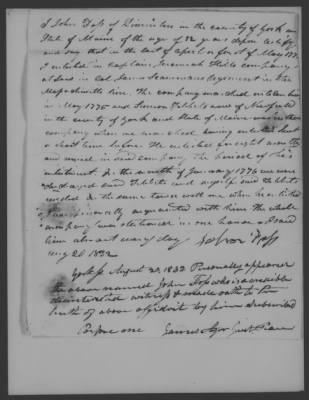 I John Foss of Limington in the county of York and
State of Maine of the age of 72 years depose testify
and say that in the last of April or first of May 1775
I enlisted in Captain Jeremiah Hill's company
at Saco in Col. James Scammans Regiment in the
Massachusetts line. The company marched
in May 1775 and Simeon Tibbets of
in the county of York and State of Maine was in the
company when we marched having enlisted but
a short time before. He enlisted for eight months
and in said company the period of his
enlistment. In the month of January 1776 we were
discharged and Tibbets and myself
in the same town with me when he enlisted
I was acquainted with him the whole
company was stationed in one house & I saw
him almost every day John Foss
Aug 20 1832
York ss August 20, 1832 Personally appeared
the above named John Foss who is a credible
disinterested witness & made oath to the
truth of above affidavit by him subscribed
Before me James Ayer Just. Peace